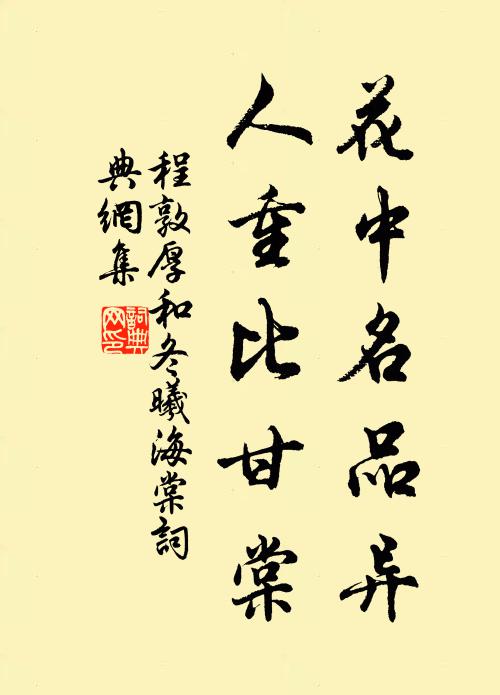 花中名品异
人重比甘棠
程敦厚和冬曦海棠词
典網集
詞典網印